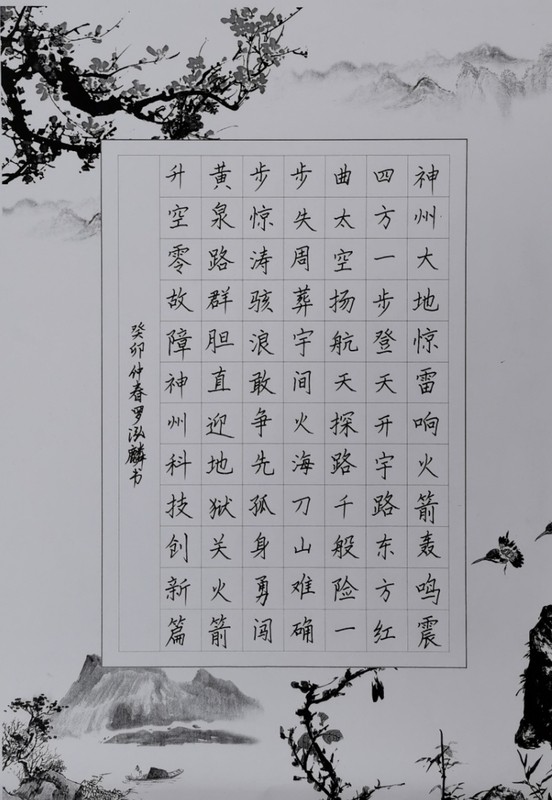 神州大地惊雷响火箭轰鸣震
四方一步登天开宇路东方红
曲太空扬航天探路千般险一
步失周葬宇间火海刀山难确
步惊涛骇浪敢争先孤身勇闯
黄泉路群胆直迎地狱关火箭
升空零故障神州科技创新篇
癸卯仲春罗泓麟书